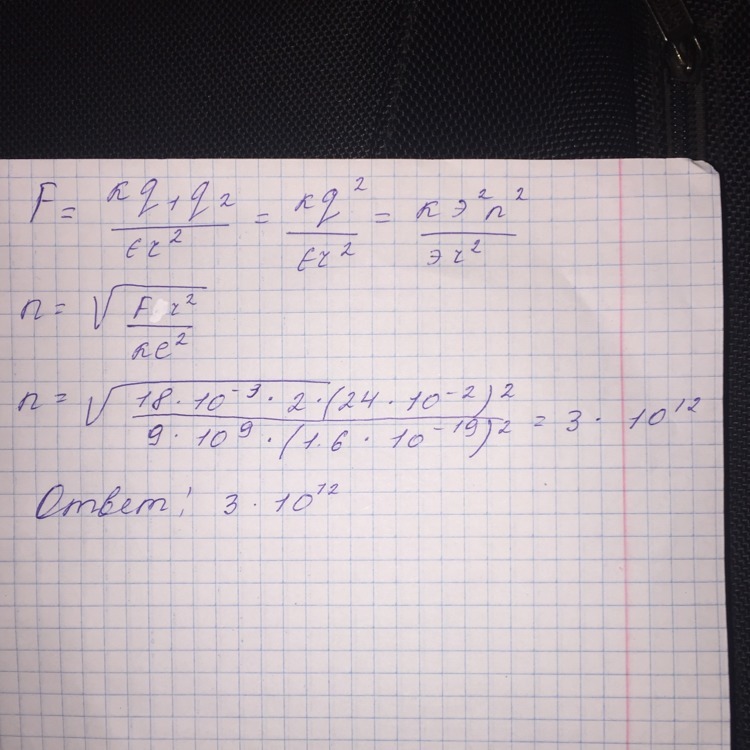 F = кq₁q₂/εr² = кq²/εr² = кэ²n²/эr²
n = √(F r²/кe²)
n = √(18 · 10⁻³ · 2 · (24 · 10⁻²)²/9 · 10⁹ · (1.6 · 10⁻¹⁹)²) = 3 · 10¹²
Ответ: 3 · 10¹²